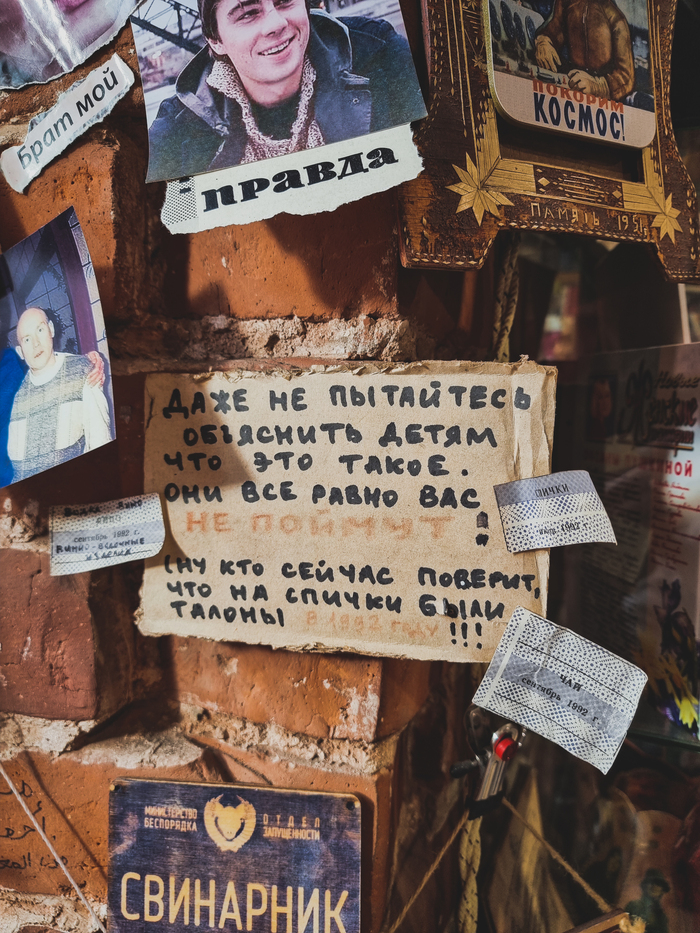 Брат мой
правда
ПОКОРИМ
КОСМОС!
ПАМЯТЬ 1951
ДАЖЕ НЕ ПЫТАЙТЕСЬ
ОБЪЯСНИТЬ ДЕТЯМ
ЧТО ЭТО ТАКОЕ.
ОНИ ВСЕ РАВНО ВАС
НЕ ПОЙМУТ !
(НУ КТО СЕЙЧАС ПОВЕРИТ,
ЧТО НА СПИЧКИ БЫЛИ
ТАЛОНЫ В 1992 году !!!
сентябрь 1992 г.
ВИННО-ВОДОЧНЫЕ
ИЗДЕЛИЯ
СПИЧКИ
1992 г.
ЧАЙ
сентябрь 1992 г.
МИНИСТЕРСТВО
БЕСПОРЯДКА
ОТДЕЛ
ЗАПУЩЕННОСТИ
СВИНАРНИК